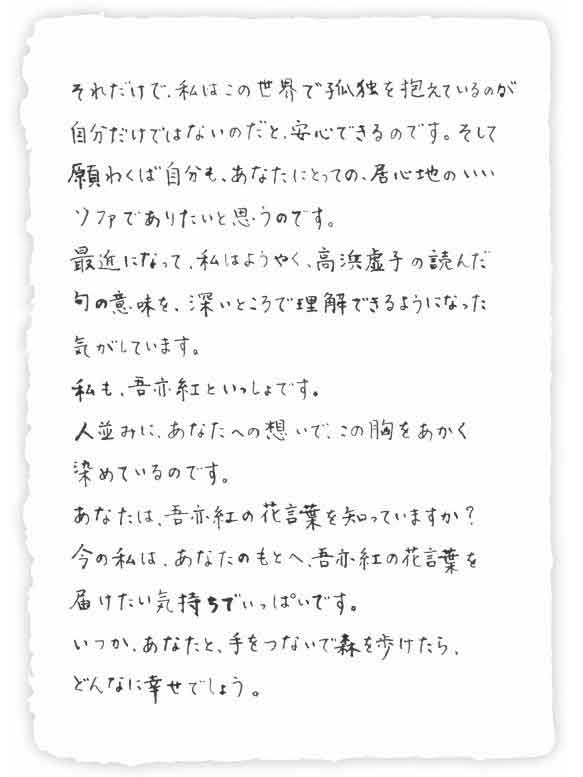 それだけで、私はこの世界で孤独を抱えているのが
自分だけではないのだと、安心できるのです。そして
願わくば自分も、あなたにとっての、居心地のいい
ソファでありたいと思うのです。
最近になって、私はようやく、高浜虚子の読んだ
句の意味を、深いところで理解できるようになった
気がしています。
私も、吾亦紅といっしょです。
人並みに、あなたへの想いで、この胸をあかく
染めているのです。
あなたは、吾亦紅の花言葉を知っていますか？
今の私は、あなたのもとへ、吾亦紅の花言葉を
届けたい気持ちでいっぱいです。
いつか、あなたと、手をつないで森を歩けたら、
どんなに幸せでしょう。